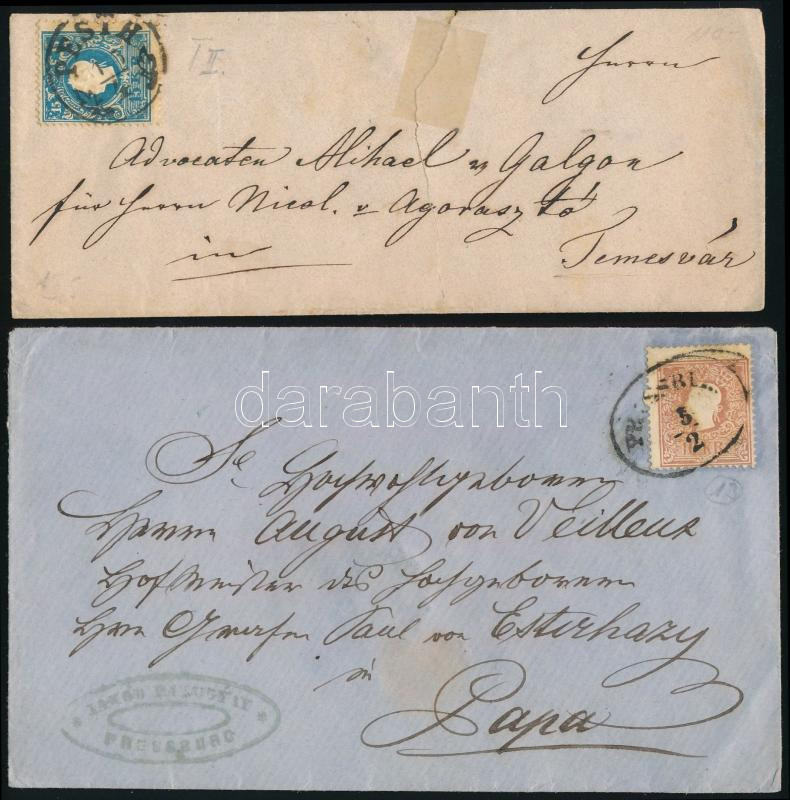 PESTH
15
T II
110-
Herrn
Advocaten Mihael v Galgon
für Herrn Nicol. v Agorasztó
in
Temesvár
darabanth
5
2
13
Sr Hochwohlgeboren
Herrn August von Veillenz
Hofmeister des hochgeboren
Hrn Grafen Paul von Esterhazy
in
Papa
PRESSBURG